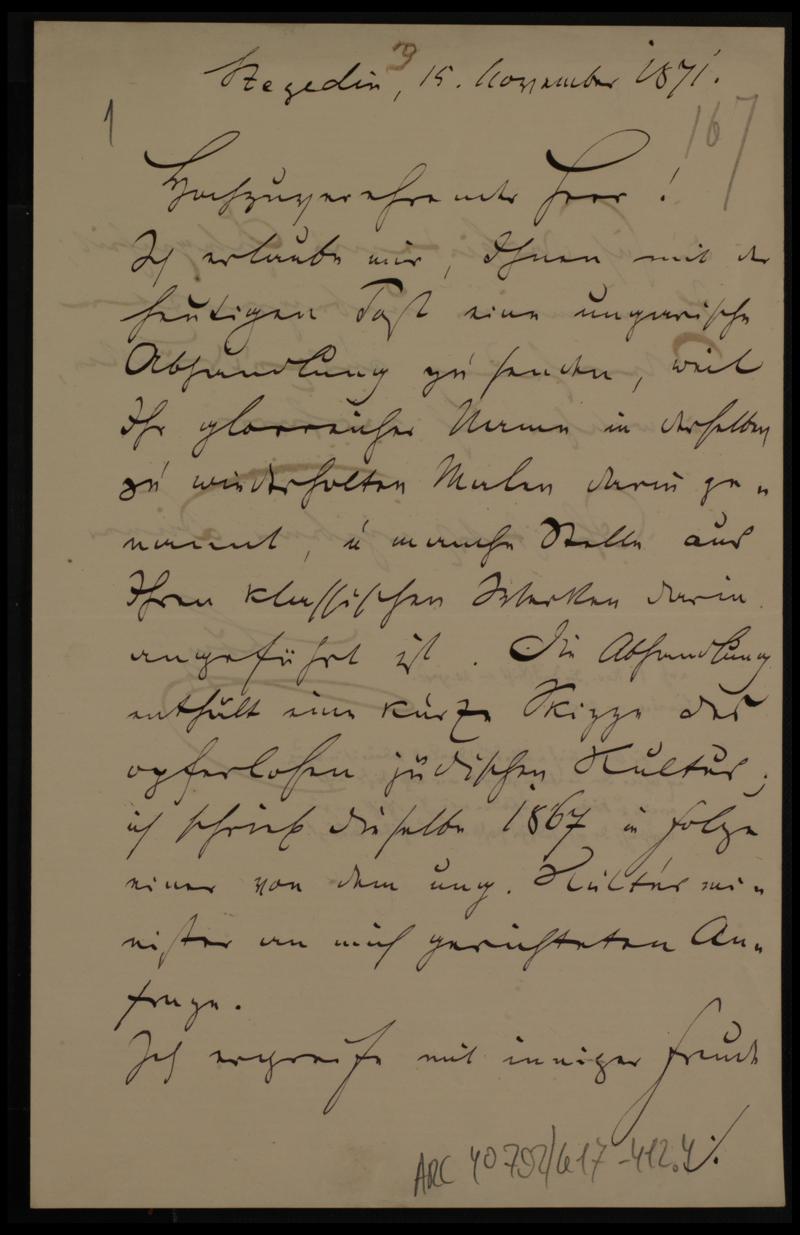 3
Szegedin, 15. November 1871.
1
167
Hochzuverehrender Herr!
Ich erlaube mir, Ihnen mit der
heutigen Post eine ungarische
Abhandlung zu senden, weil
Ihr glorreicher Name in derselben
zu wiederholten Malen darin ge-
nannt, u manche Stelle aus
Ihren klassischen Werken darin
angeführt ist. Die Abhandlung
enthält eine kurze Skizze des
opferlosen jüdischen Kultus;
ich schrieb dieselbe 1867 in Folge
einer von dem ung. Kultusmi-
nister an mich gerichteten An-
frage.
Ich ergreife mit inniger Freude
ARC 4o 792/G17-412.4
./.